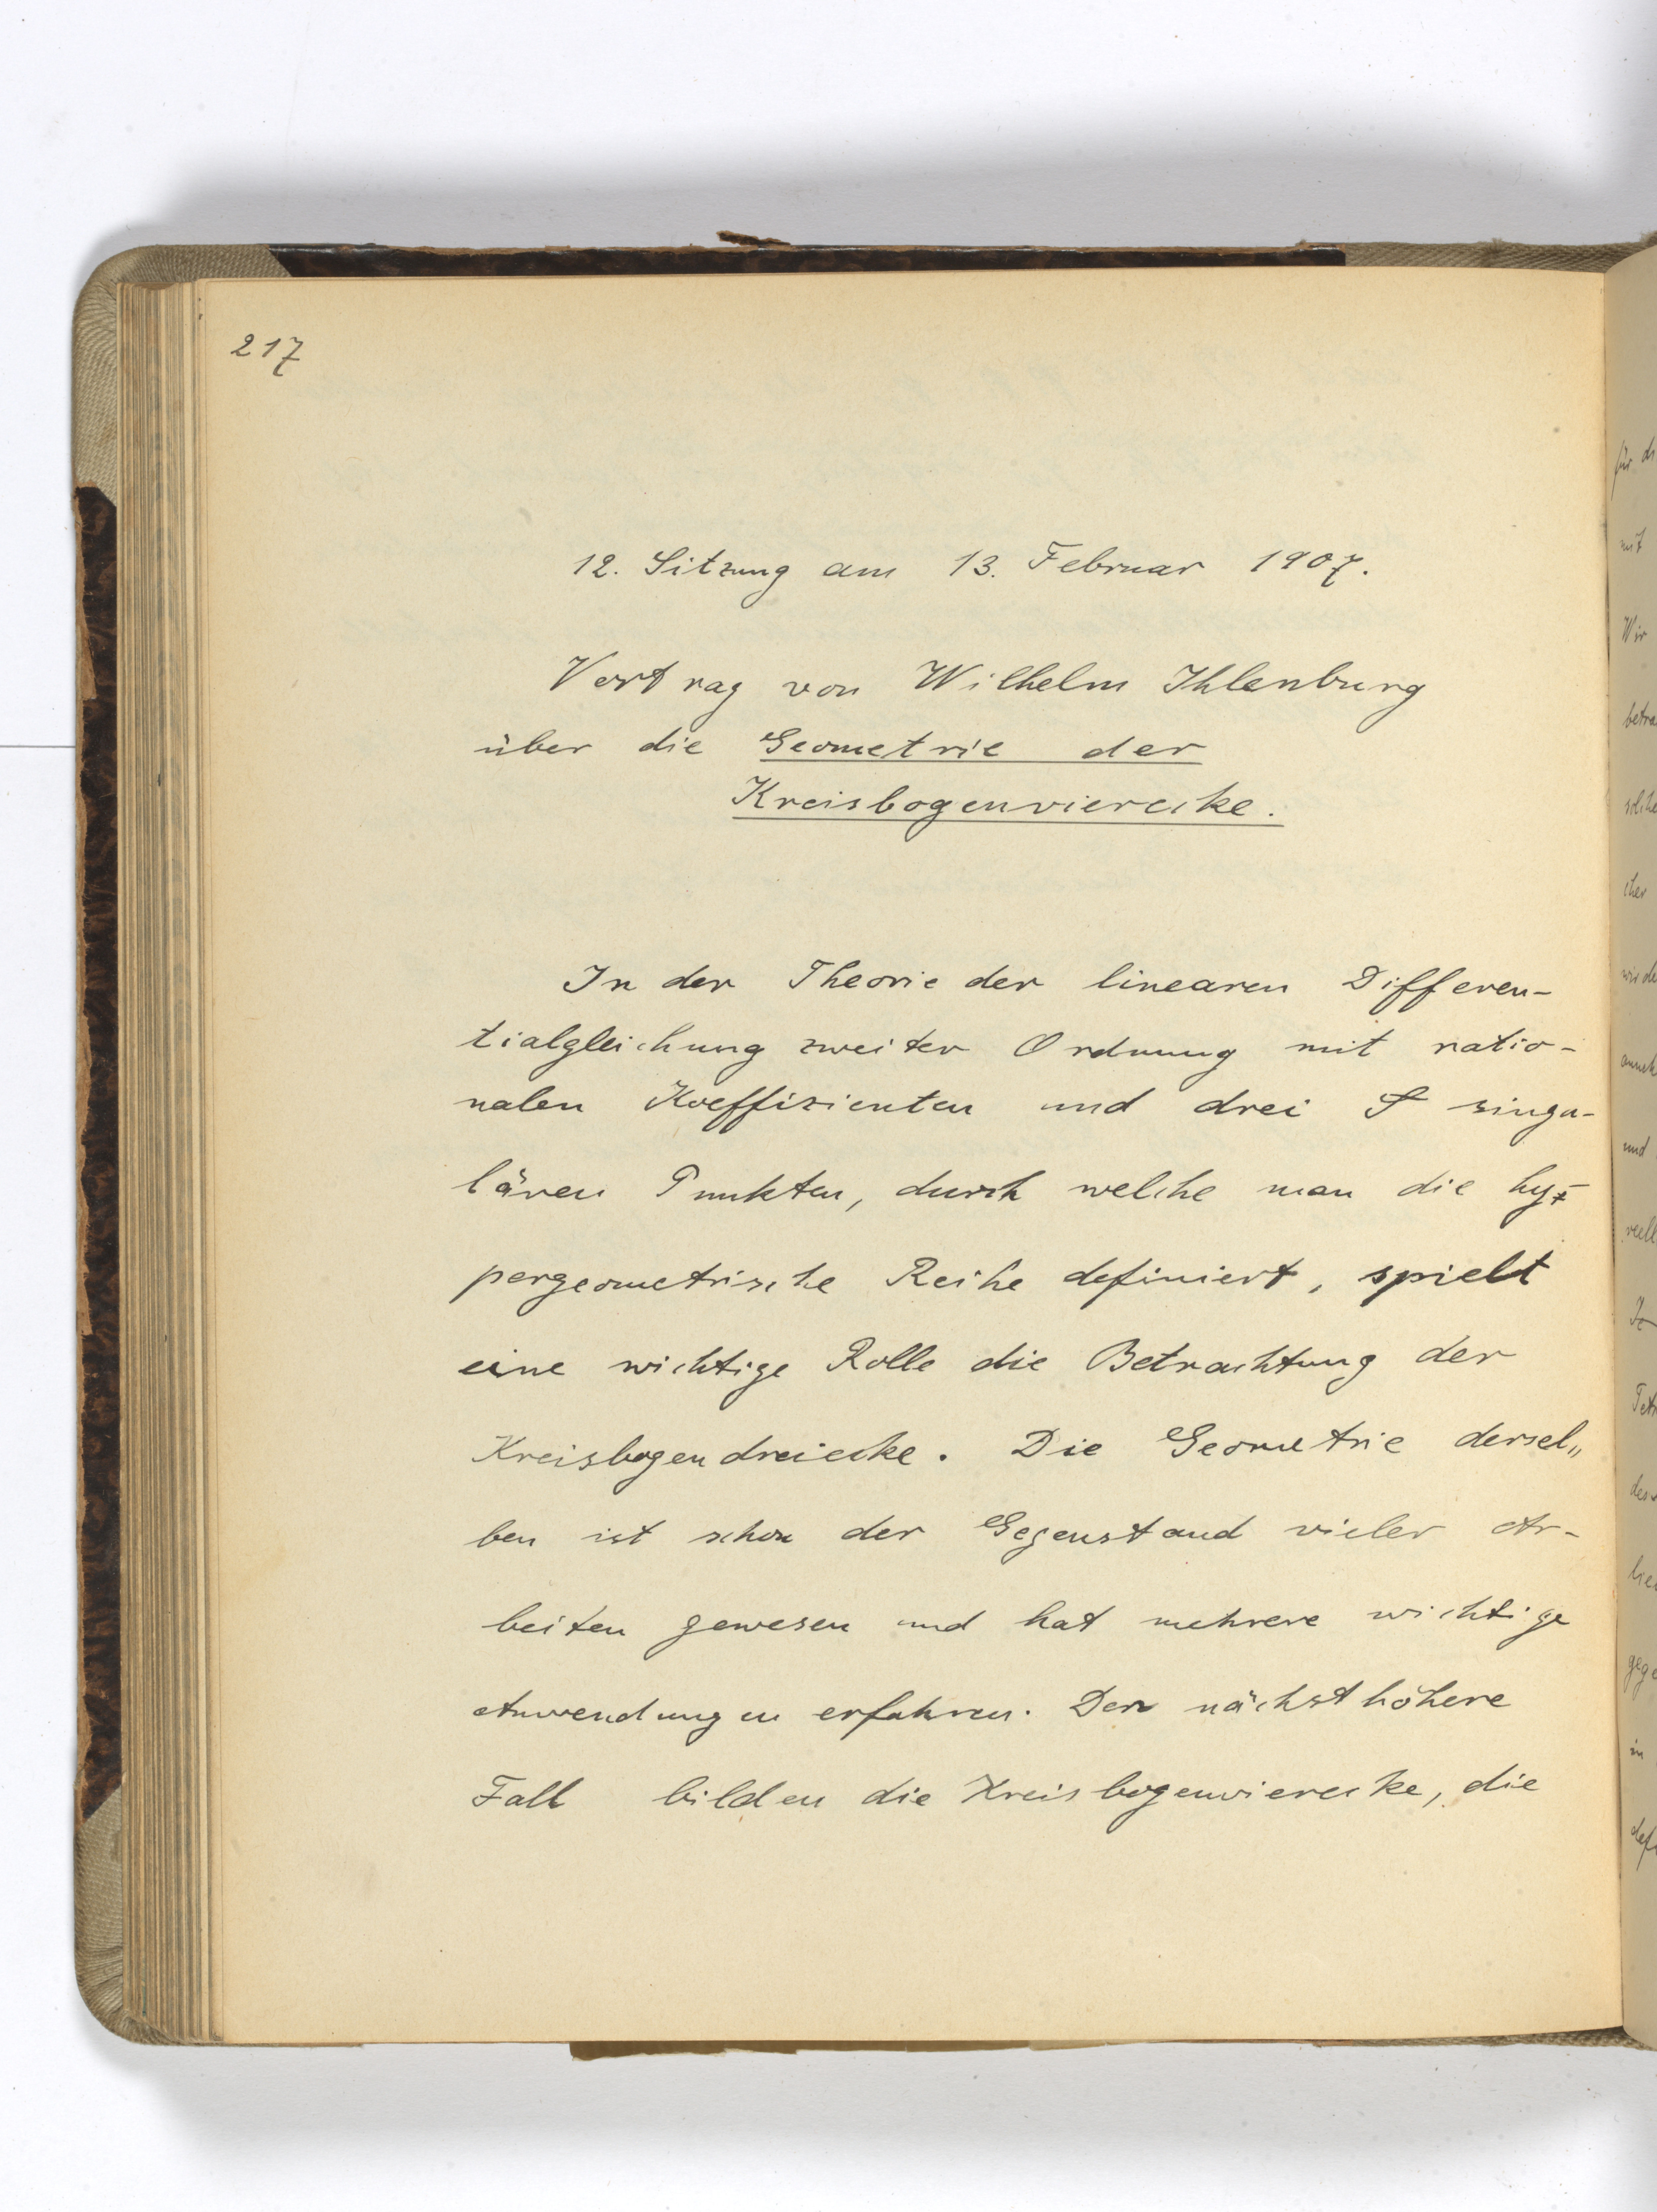 217
12. Sitzung am 13. Februar 1907.
Vortrag von Wilhelm Ihlenburg
über die Geometrie der
Kreisbogenvierecke.
In der Theorie der linearen Differen-
tialgleichung zweiter Ordnung mit ratio-
nalen Koeffizienten und drei singu-
lären Punkten, durch welche man die hy-
pergeometrische Reihe definiert, spielt
eine wichtige Rolle die Betrachtung der
Kreisbogendreiecke. Die Geometrie dersel„
ben ist schon der Gegenstand vieler Ar-
beiten gewesen und hat mehrere wichtige
Anwendungen erfahren. Den nächst höhere
Fall bilden die Kreisbogenvierecke, die
für
mit
Wir
und
in